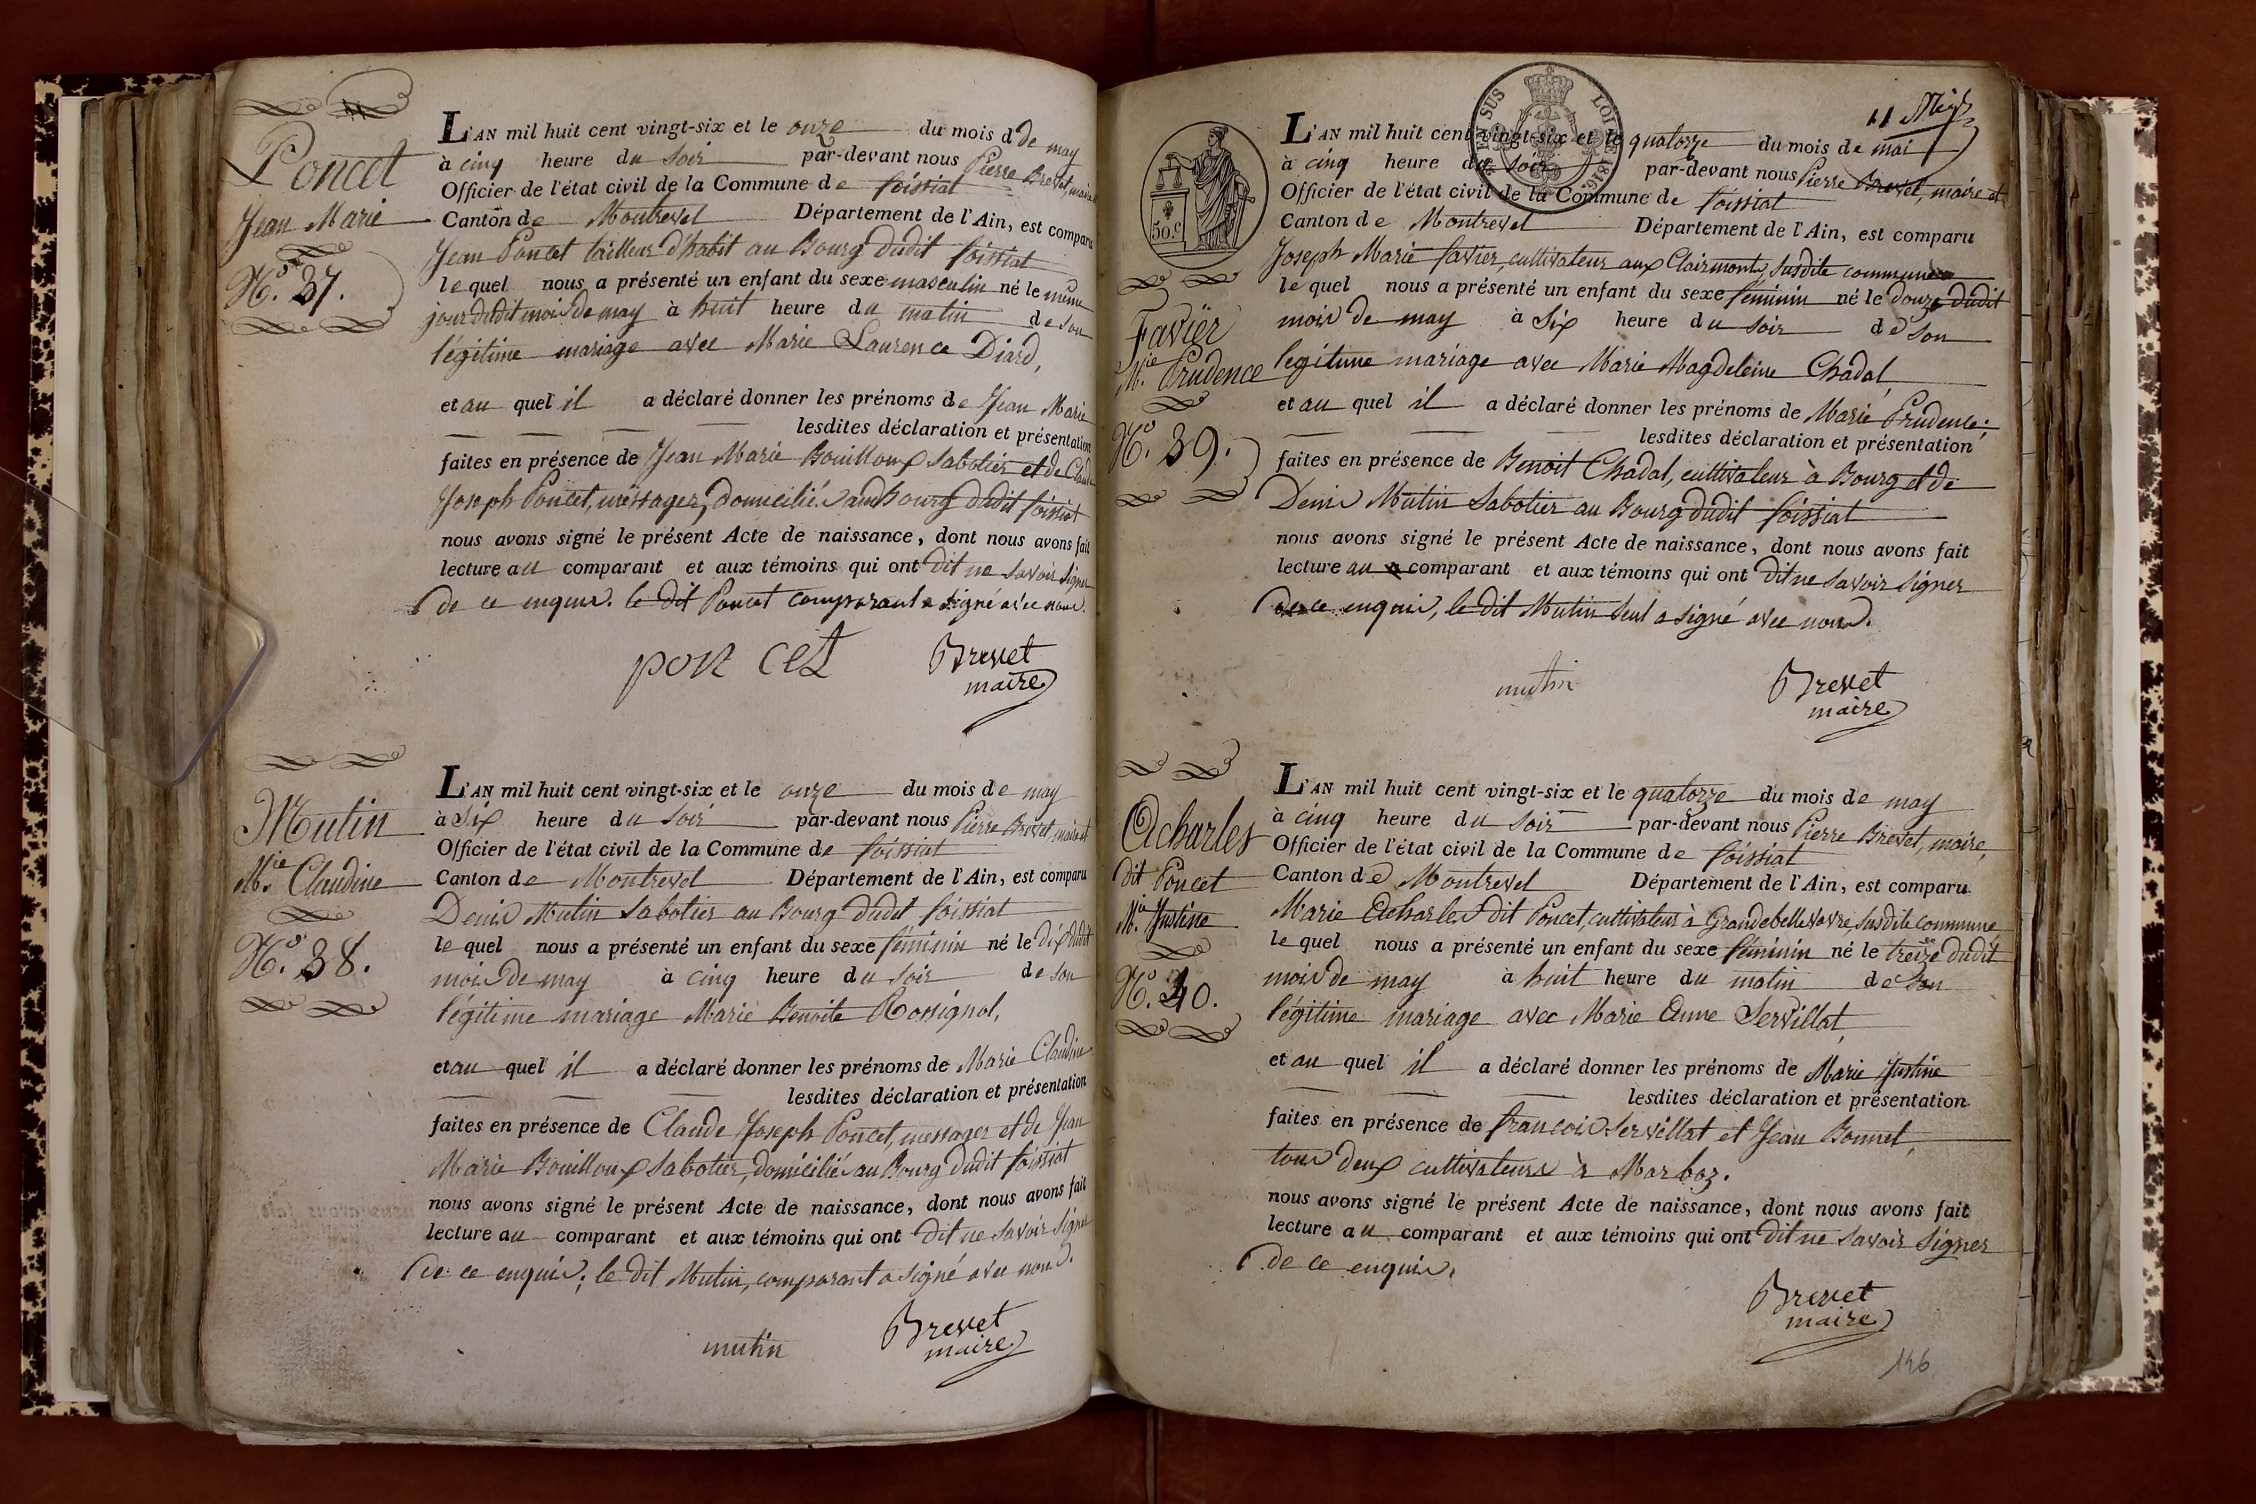 Poncet
Jean Marie
N.° 37.
L'AN mil huit cent vingt-six et le onze du mois d de may
à cinq heure du soir par-devant nous Pierre Brevet, maire
Officier de l'état civil de la Commune de foissiat
Canton de Montrevel Département de l'Ain, est comparu
Jean Poncet tailleur d'habit au Bourg dudit foissiat
lequel nous a présenté un enfant du sexe masculin né le même
jour dudit mois de may à huit heure du matin de son
légitime mariage avec Marie Laurence Diard,
et au quel il a déclaré donner les prénoms de Jean Marie
lesdites déclaration et présentation
faites en présence de Jean Marie Bouilloux sabotier et de Claude
Joseph Poncet, messager, domiciliés au bourg dudit foissiat
nous avons signé le présent Acte de naissance, dont nous avons fait
lecture au comparant et aux témoins qui ont dit ne savoir signer
de ce enquis. le dit Poncet comparant a signé avec nous.
pon cet
Brevet
maire
Mutin
M.ie Claudine
N.° 38.
L'AN mil huit cent vingt-six et le onze du mois de may
à six heure du soir par-devant nous Pierre Brevet, maire et
Officier de l'état civil de la Commune de foissiat
Canton de Montrevel Département de l'Ain, est comparu
Denis Mutin sabotier au Bourg dudit foissiat
lequel nous a présenté un enfant du sexe féminin né le dix dudit
mois de may à cinq heure du soir de son
légitime mariage Marie Benoite Rossignol,
et au quel il a déclaré donner les prénoms de Marie Claudine
lesdites déclaration et présentation
faites en présence de Claude Joseph Poncet, messager et de Jean
Marie Bouilloux sabotier, domiciliés au Bourg dudit foissiat
nous avons signé le présent Acte de naissance, dont nous avons fait
lecture au comparant et aux témoins qui ont dit ne savoir signer
de ce enquis; le dit Mutin, comparant a signé avec nous.
mutin
Brevet
maire
EN SUS LOI DE 1816.
50.c
Favier
M.ie Prudence
N.° 39.
L'AN mil huit cent vingt-six et le quatorze du mois de mai
à cinq heure du soir par-devant nous Pierre Brevet, maire et
Officier de l'état civil de la Commune de foissiat
Canton de Montrevel Département de l'Ain, est comparu
Joseph Marie favier, cultivateur aux Clairmonts, susdite commune
lequel nous a présenté un enfant du sexe féminin né le douze dudit
mois de may à six heure du soir de son
legitime mariage avec Marie Magdeleine Chadal,
et au quel il a déclaré donner les prénoms de Marie Prudence;
lesdites déclaration et présentation
faites en présence de Benoit Chadal, cultivateur à Bourg et de
Denis Mutin sabotier au Bourg dudit foissiat
nous avons signé le présent Acte de naissance, dont nous avons fait
lecture au comparant et aux témoins qui ont dit ne savoir signer
de ce enquis, le dit Mutin seul a signé avec nous.
mutin
Brevet
maire
Acharles
dit Poncet
M.ie Justine
N.° 40.
L'AN mil huit cent vingt-six et le quatorze du mois de may
à cinq heure du soir par-devant nous Pierre Brevet, maire,
Officier de l'état civil de la Commune de foissiat
Canton de Montrevel Département de l'Ain, est comparu
Marie Acharles dit Poncet, cultivateur à Grandebellevavre, susdite commune
lequel nous a présenté un enfant du sexe féminin né le treize dudit
mois de may à huit heure du matin de son
légitime mariage avec Marie Anne Servillat,
et au quel il a déclaré donner les prénoms de Marie Justine
lesdites déclaration et présentation
faites en présence de francois Servillat et Jean Bonnet,
tous deux cultivateurs à Marboz.
nous avons signé le présent Acte de naissance, dont nous avons fait
lecture au comparant et aux témoins qui ont dit ne savoir signer
de ce enquis.
Brevet
maire
146